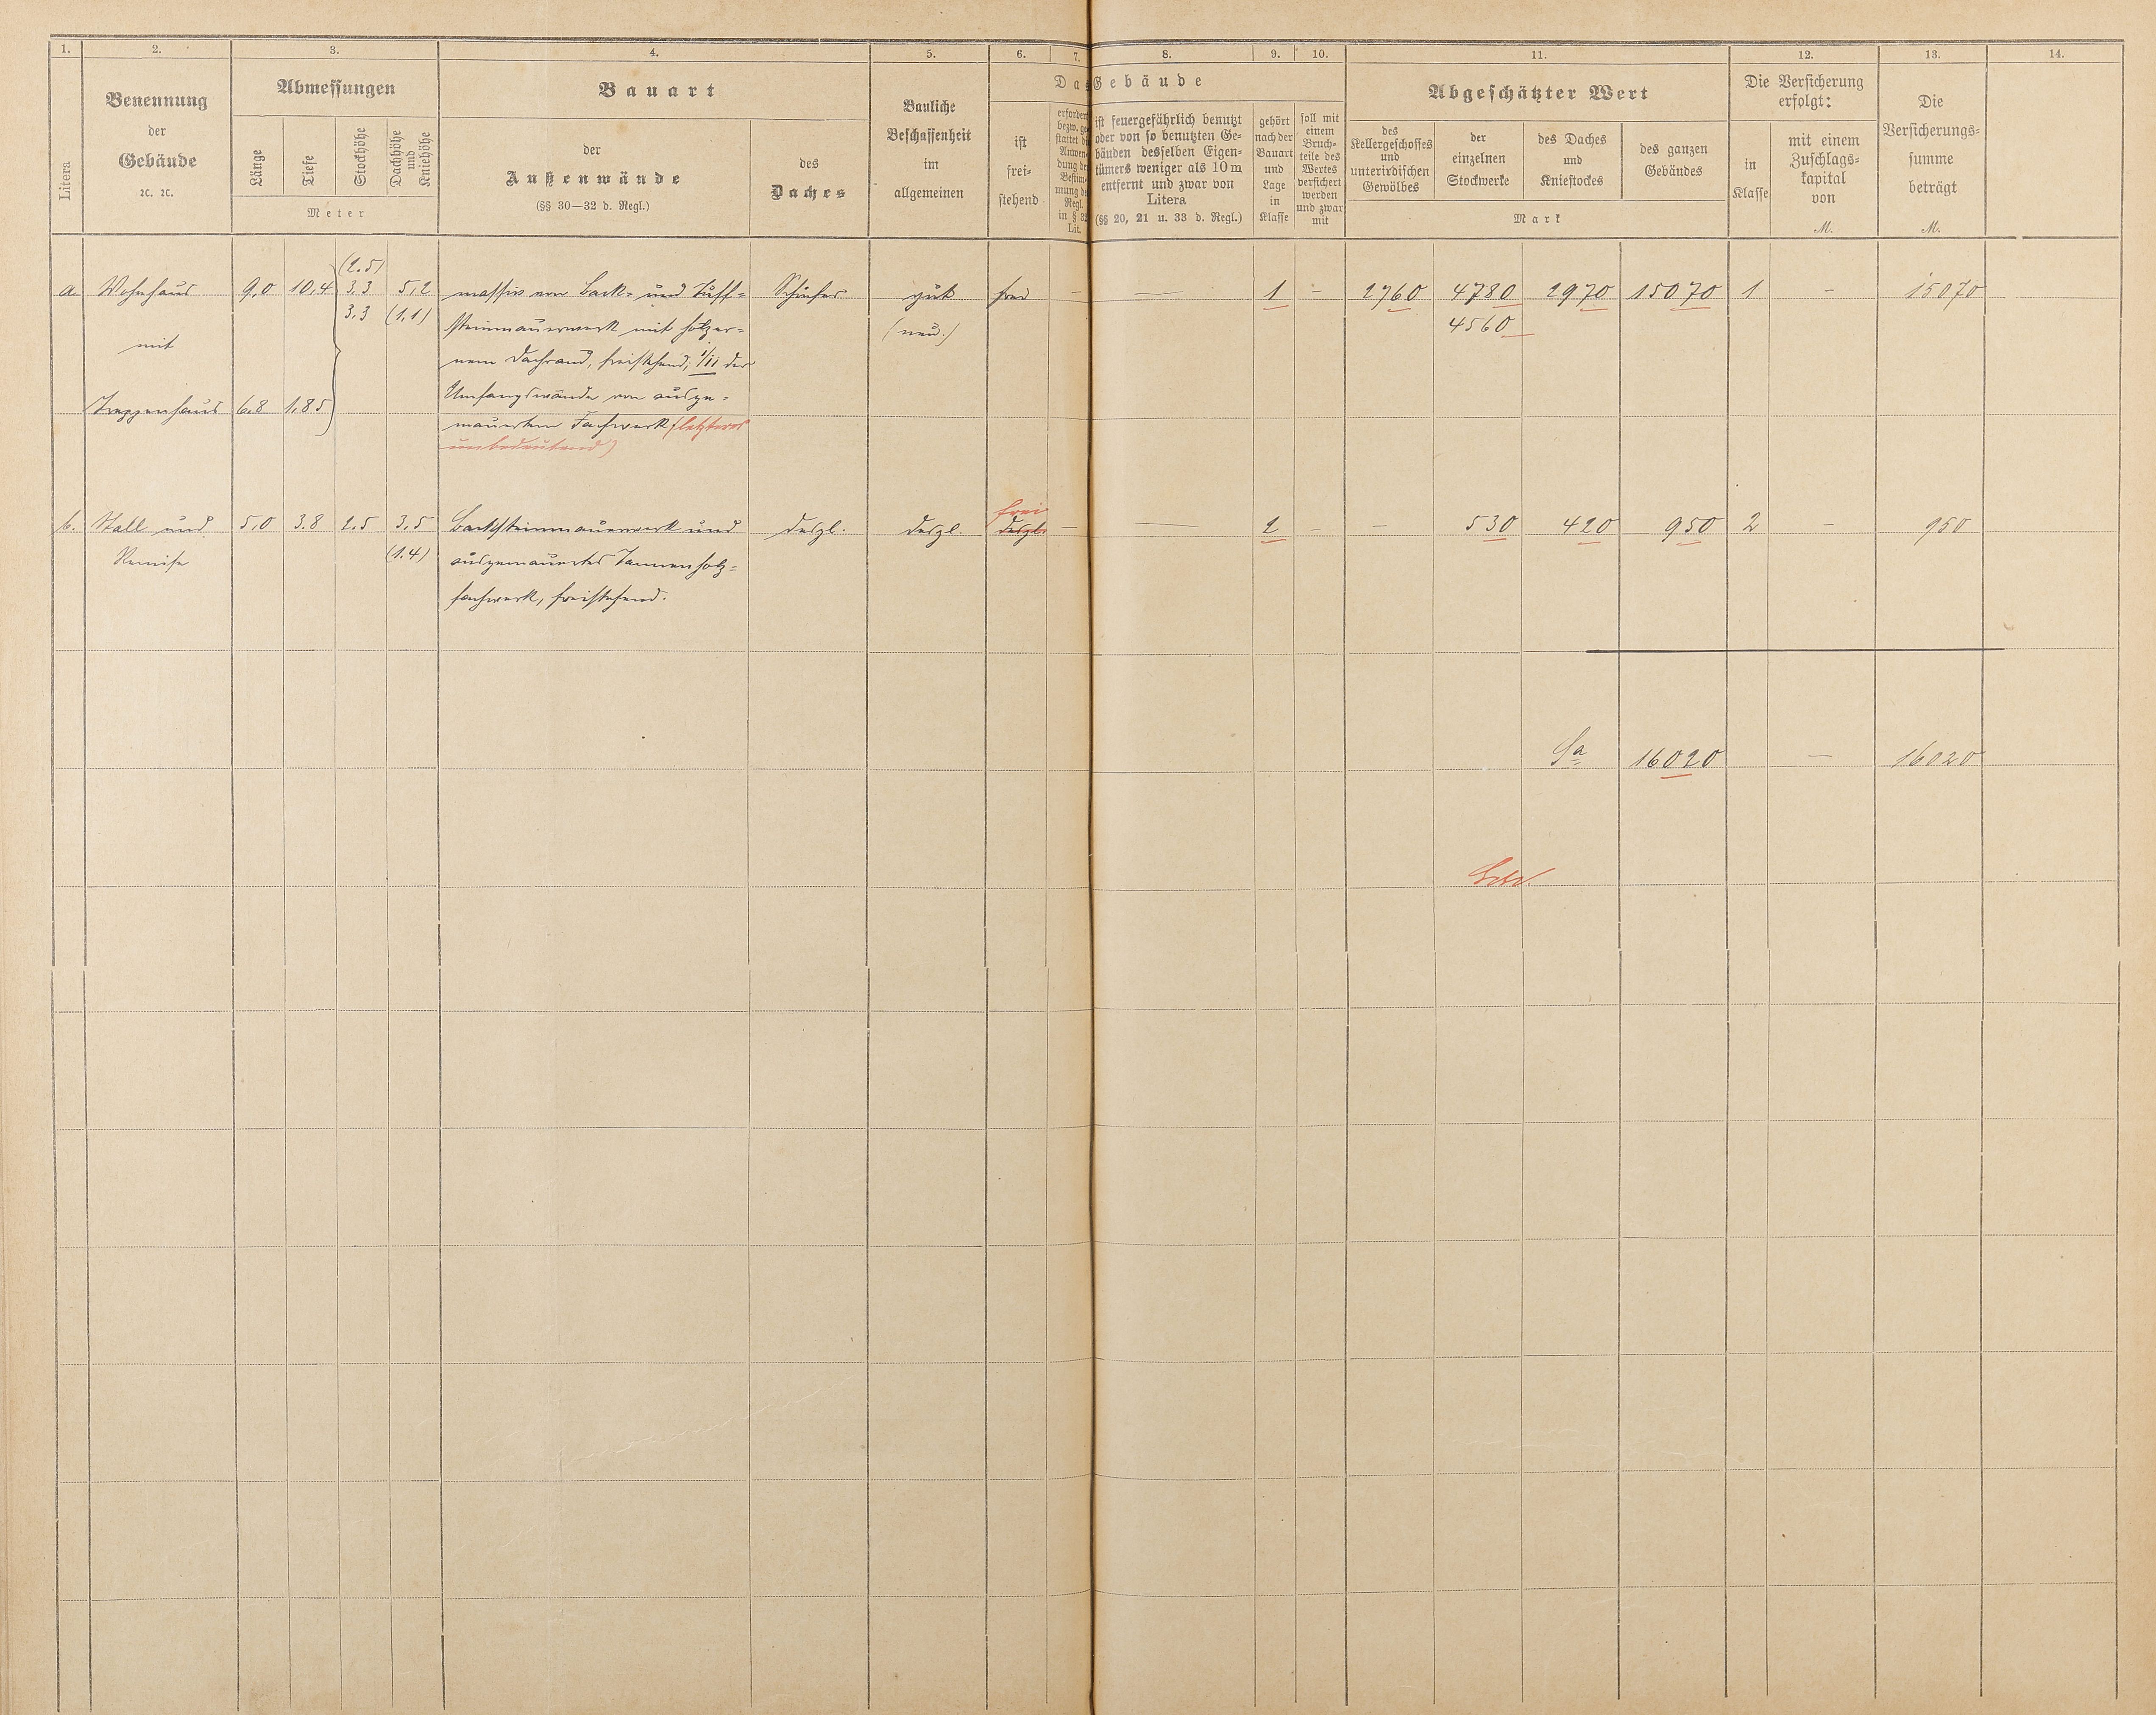 1. 2. 3. 4. 5. 6. 7. 8. 9. 10. 11. 12. 13. 14.
Litera
Benennung
der
Gebäude
ꝛc. ꝛc.
Abmessungen
Länge
Tiefe
Stockhöhe
Dachhöhe
und
Kniehöhe
Meter
Bauart
der
Außenwände
(§§ 30—32 d. Regl.)
des
Daches
Bauliche
Beschaffenheit
im
allgemeinen
Das Gebäude
ist
frei-
stehend
erfordert
bezw. ge-
stattet die
Anwen-
dung der
Bestim-
mung des
Regl.
in § 32
Lit.
ist feuergefährlich benutzt
oder von so benutzten Ge-
bäuden desselben Eigen-
tümers weniger als 10 m
entfernt und zwar von
Litera
(§§ 20, 21 u. 33 d. Regl.)
gehört
nach der
Bauart
und
Lage
in
Klasse
soll mit
einem
Bruch-
teile des
Wertes
versichert
werden
und zwar
mit
Abgeschätzter Wert
des
Kellergeschosses
und
unterirdischen
Gewölbes
der
einzelnen
Stockwerke
des Daches
und
Kniestockes
des ganzen
Gebäudes
Mark
Die Versicherung
erfolgt:
in
Klasse
mit einem
Zuschlags-
kapital
von
M.
Die
Versicherungs-
summe
beträgt
M.
(2.5)
a. Wohnhaus 9,0 10,4 3,3 5,2 massiv von Back- und Tuff- Schiefer gut frei — — 1 — 2760 4780 2970 15070 1 — 15070
3.3 (1.1) steinmauerwerk mit hölzer- (neu.) 4560
mit nem Dachrand, freistehend; 1/11 der
Umfangswände von ausge-
Treppenhaus 6.8 1.85
mauertem Fachwerk (letzteres
unbedeutend)
frei
b. Stall und 5,0 3.8 2.5 3,5 Backsteinmauerwerk und desgl. desgl. desgl. — — 2 — — 530 420 950 2 — 950
Remise (1.4) ausgemauertes Tannenholz-
fachwerk, freistehend.
Sa 16020 — 16020